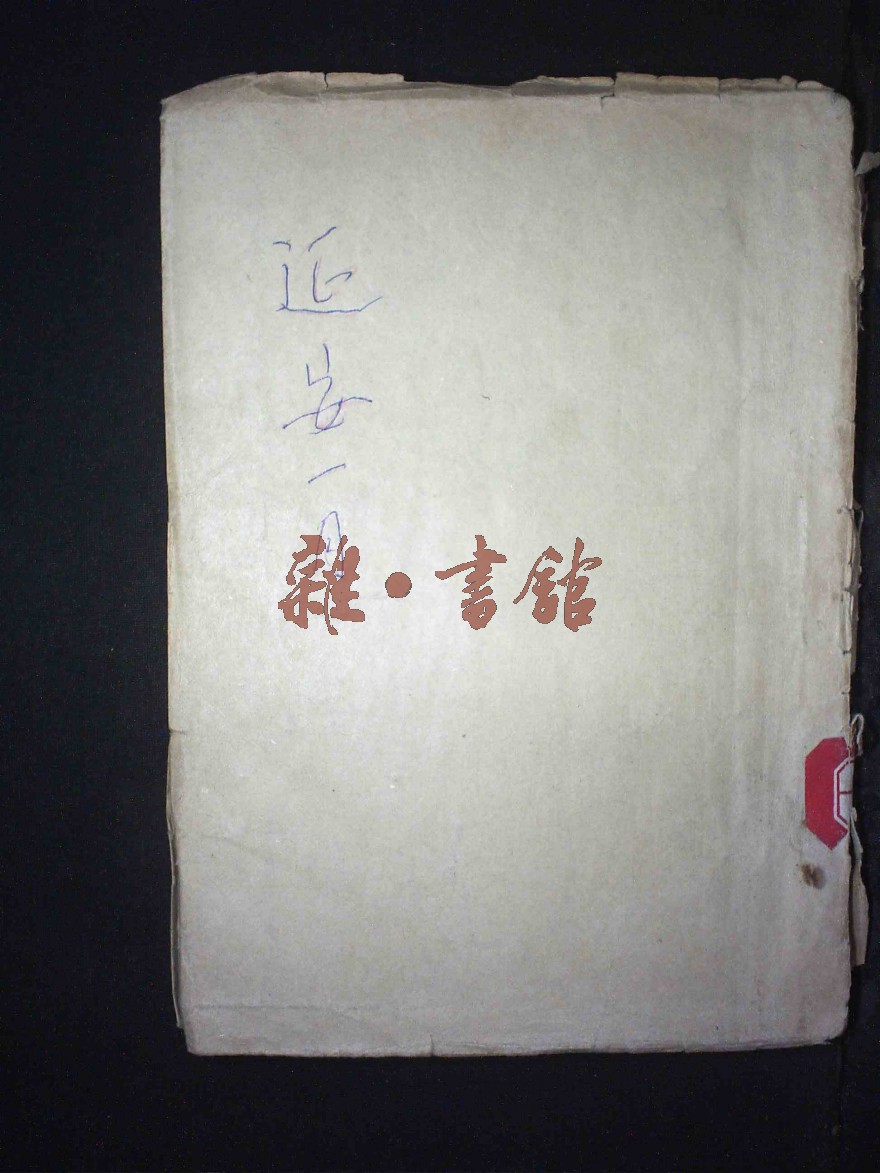 延安一月
雜·書館